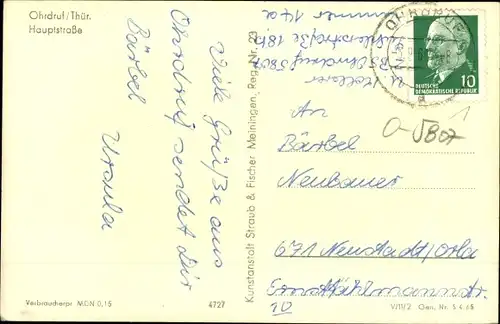 Ohrdruf/Thür.
Hauptstraße
Viele Grüße aus
Ohrdruf sendet Dir
Bärbel
Ursula
Verbraucherpr. MDN 0,15
4727
Kunstanstalt Straub & Fischer Meiningen, Reg.-Nr. 23
OHRDRUF
10
DEUTSCHE
DEMOKRATISCHE REPUBLIK
An
Bärbel
Neubauer
671 Neustadt/Orla
10
V/11/2 Gen. Nr. 5 4 65